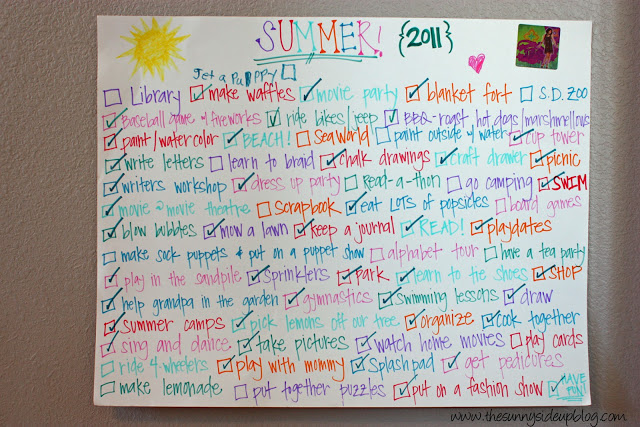 SUMMER! {2011}
Jet a PUPPPY
Library make waffles movie party blanket fort S.D. ZOO
Baseball game & fireworks ride bikes/jeep BBQ-roast hot dogs/marshmellows
paint/watercolor BEACH! Sea World paint outside & water cup tower
write letters learn to braid chalk drawings craft drawer picnic
writers workshop dress up party Read-a-thon go camping SWIM
movie @ movie theatre Scrapbook eat LOTS of popsicles board games
blow bubbles mow a lawn keep a journal READ! playdates
make sock puppets & put on a puppet show alphabet tour have a tea party
play in the sandpile Sprinklers Park learn to tie shoes SHOP
help grandpa in the garden gymnastics Swimming lessons draw
summer camps pick lemons off our tree organize cook together
sing and dance take pictures watch home movies play cards
ride 4-wheelers play with mommy Splash pad get pedicures
make lemonade put together puzzles put on a fashion show HAVE FUN!
www.thesunnysideupblog.com